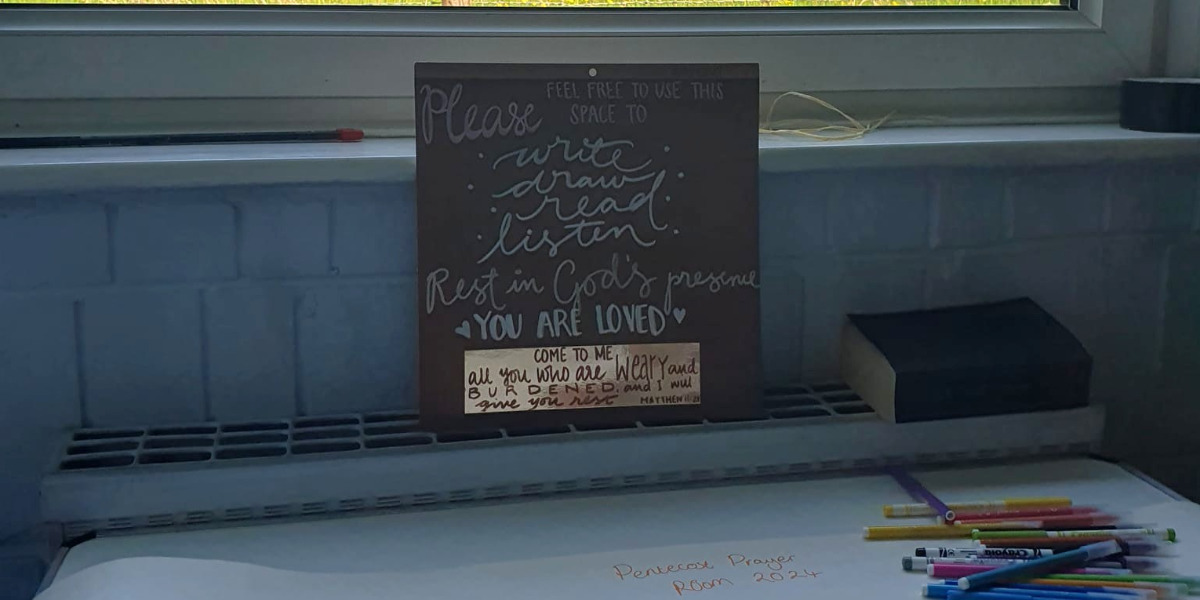 Please FEEL FREE TO USE THIS
SPACE TO
write
draw
read
listen
Rest in God's presence
YOU ARE LOVED
COME TO ME
all you who are weary and
BURDENED, and I will
give you rest MATTHEW 11:28
Crayola
Pentecost Prayer
Room 2024